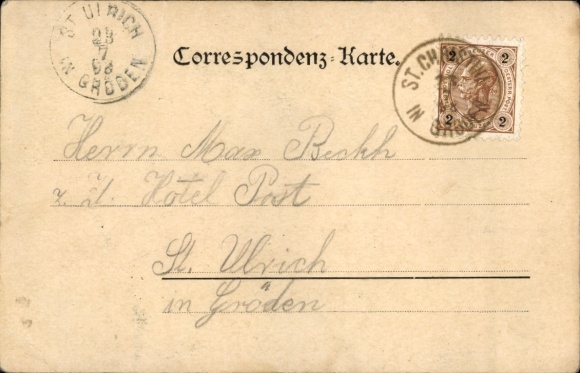 ST. ULRICH
23
7
98
IN GRÖDEN
Correspondenz-Karte.
ST. CHRISTINA
IN GRÖDEN
2 2
2 2
Herrn Max Beckh
z. Z. Hotel Post
St. Ulrich
in Gröden